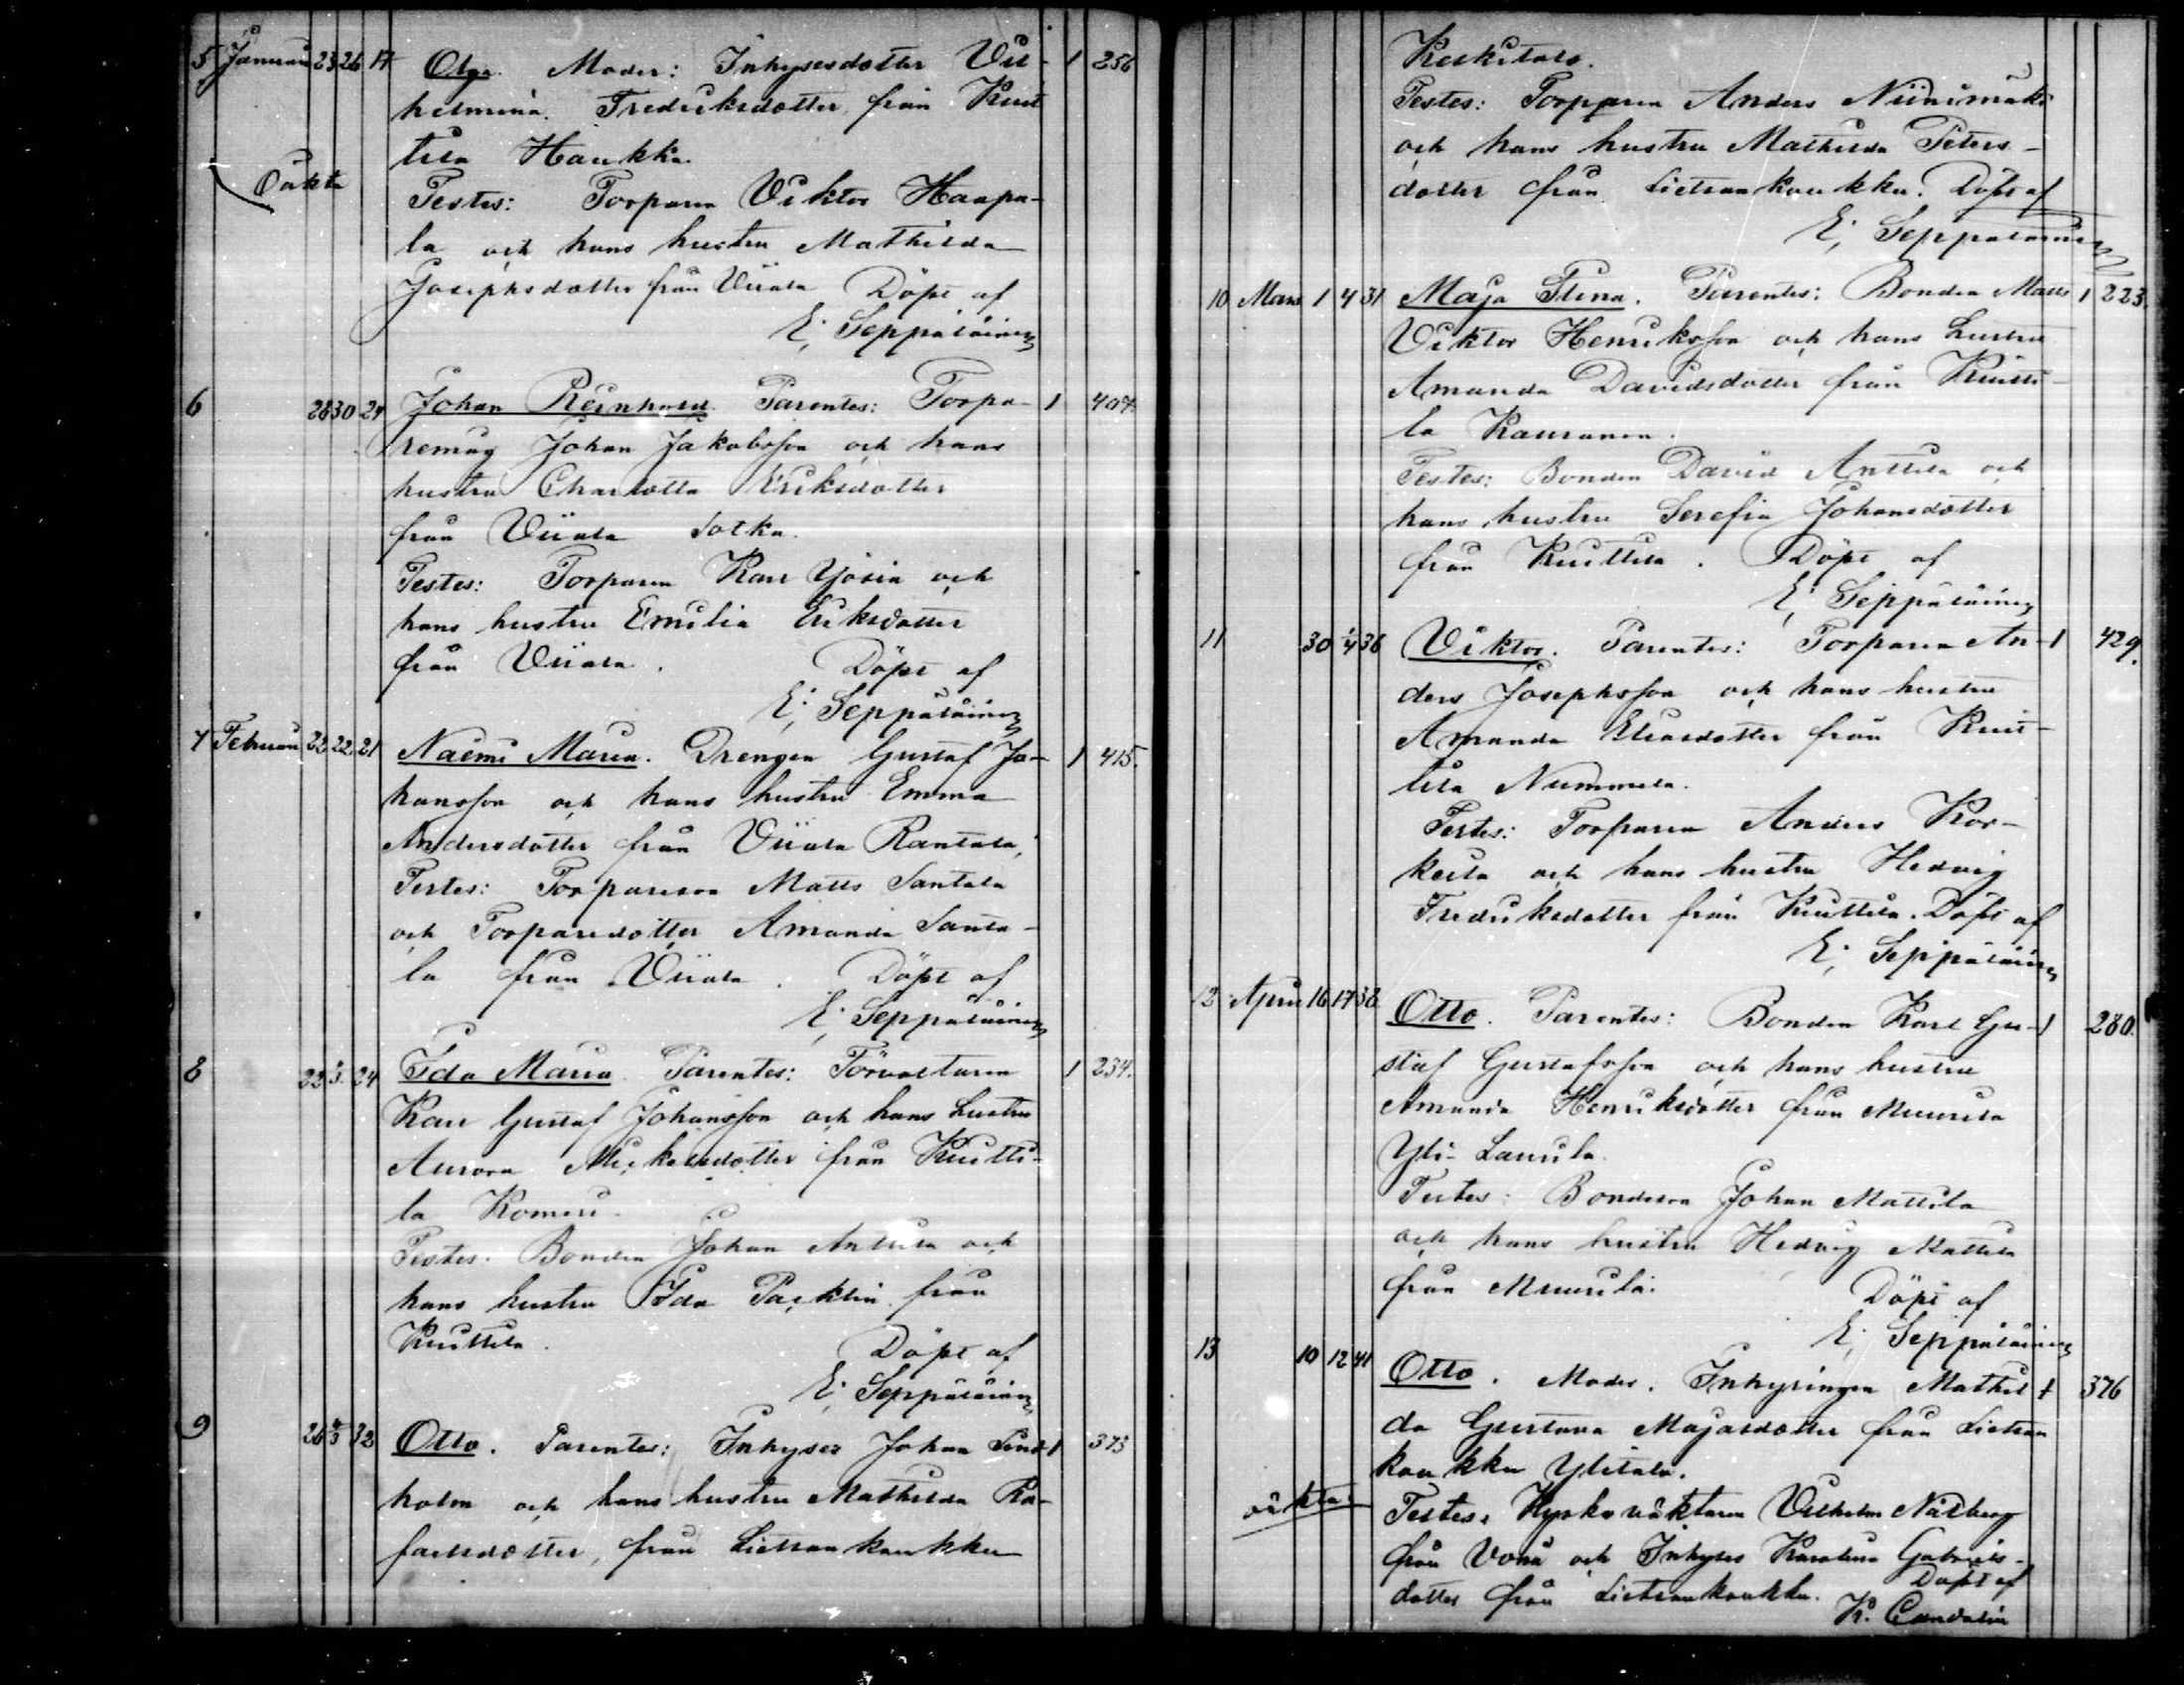 5 Januari 23 26 17 Olga. Moder: Inhysesdotter Vil- 1 256
helmina Fredriksdotter från Kuit
tila Haukka.
Oäkta
Testes: Torparen Viktor Haapa-
la och hans hustru Mathilda
Josephsdotter från Viiala Döpt af
E. Seppäläinen
6 28 30 24 Johan Reinhard. Parentes: Torpa- 1 404.
remåg Johan Jakobsson och hans
hustru Charlotta Eriksdotter
från Viiala Sotka.
Testes: Torparen Karl Yösiä och
hans hustru Emilia Eriksdotter
från Viiala. Döpt af
E. Seppäläinen
7 Februari 22 22 21 Naëmi Maria. Drengen Gustaf Jo- 1 415.
hansson och hans hustru Emma
Andersdotter från Viiala Rantala.
Testes: Torpareson Matts Santala
och Torparedotter Amanda Santa-
la från Viiala. Döpt af
E. Seppäläinen
8 22 24 Ida Maria. Parentes: Förvaltaren 1 234.
Karl Gustaf Johansson och hans hustru
Aurora Mickelsdotter från Kuitti-
la Komeri.
Testes. Bonden Johan Anttila och
hans hustru Ida Packlin från
Kuittila. Döpt af
E. Seppäläinen
9 32 Otto. Parentes: Inhyses Johan Lind- 1 373
holm och hans hustru Mathilda Ra-
faelsdotter, från Lietsankaukka
Keskitalo.
Testes: Torparen Anders Niinimäki
och hans hustru Mathilda Peters-
dotter från Lietsankaukka. Döpt af
E. Seppäläinen
10 Mars 1 4 31 Maja Stina. Parentes: Bonden Matts 1 223.
Viktor Henriksson och hans hustru
Amanda Davidsdotter från Kuitti-
la Rauvanen.
Testes: Bonden David Anttila och
hans hustru Serefia Johansdotter
från Kuittila. Döpt af
E. Seppäläinen
11 30 1/4 36 Viktor. Parentes: Torparen An- 1 429.
ders Josephsson och hans hustru
Amanda Eliasdotter från Kuit-
tila Nummela.
Testes: Torparen Anders Kor-
kesta och hans hustru Hedvig
Fredriksdotter från Kuittila. Döpt af
E. Seppäläinen
12 April 16 17 38. Otto. Parentes: Bonden Karl Gu- 1 280.
staf Gustafsson och hans hustru
Amanda Henriksdotter från Muurila
Yli-Laurila.
Testes: Bondeson Johan Mattila
och hans hustru Hedvig Mattila
från Muurila. Döpt af
E. Seppäläinen
13 10 12 41 Otto. Moder. Inhysingen Mathil- 1 376
da Gustava Majasdotter från Lietsan
kaukka Ylitalo.
oäkta
Testes. Kyrkoväktaren Vilhelm Nälberg
från Voua och Inhyses Karolina Gabriels-
dotter från Lietsankaukka. Döpt af
K.